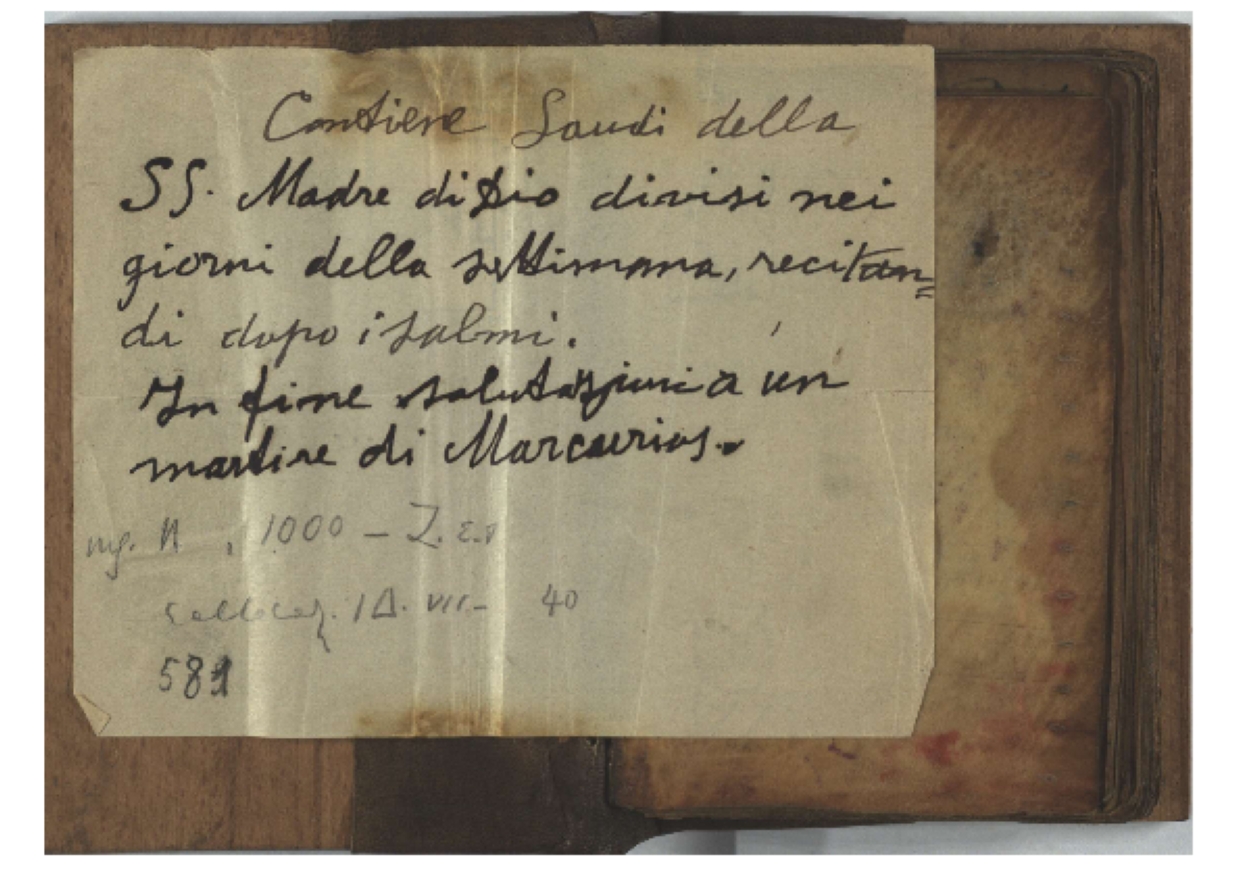 Contiene Laudi della
SS. Madre di Dio divisi nei
giorni della settimana, recitan=
di dopo i salmi.
In fine salutazioni a un
martire di Marcaurios.
N 1000 – Z.
collocaz. IΔ. VII– 40
581